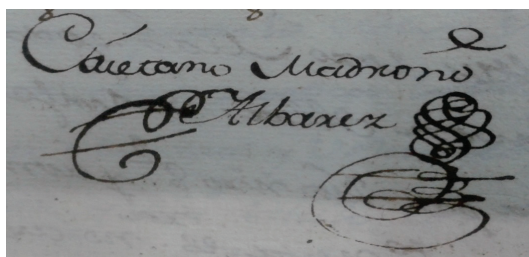 Caietano Madrono
Albarez